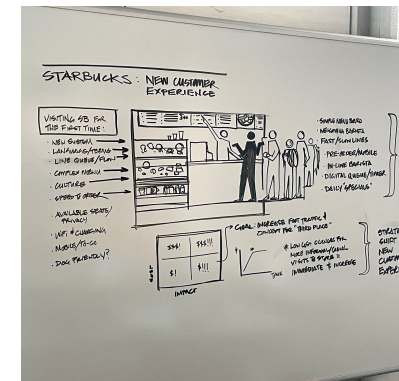 STARBUCKS: NEW CUSTOMER
EXPERIENCE
VISITING SB FOR
THE FIRST TIME:
• NEW SYSTEM
• LANGUAGE/TERMS
• LINE QUEUE/FLOW
• COMPLEX MENU
• CULTURE
• SPEED TO ORDER
• AVAILABLE SEATS/
PRIVACY
• WIFI & CHARGING
• MOBILE/TO-GO
• DOG FRIENDLY?
• SIMPLE MENU BOARD
• WELCOMING BARISTA
• FAST/SLOW LINES
• PRE-ORDER/MOBILE
• IN-LINE BARISTA
• DIGITAL QUEUE/TIMER
• DAILY "SPECIALS"
GOAL: INCREASE FOOT TRAFFIC &
CONCEPT FOR "THIRD PLACE"
$$$!
$$!!!
$!
$!!!
IMPACT
TIME
MORE
VISITS TO STORE =
IMMEDIATE $ INCREASE
STRATE
SHIFT
NEW
CUSTOM
EXPER